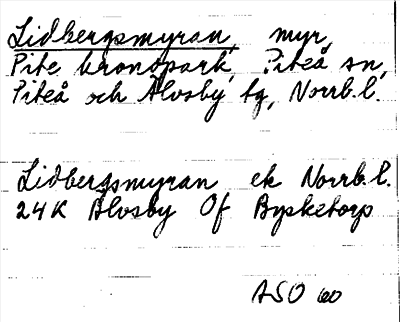 Lidbergsmyran, myr,
Pite kronopark, Piteå sn,
Piteå och Älvsby tg, Norrb. l.
Lidbergsmyran ek Norrb. l.
24K Älvsby Of Bysketorp
ASO 60